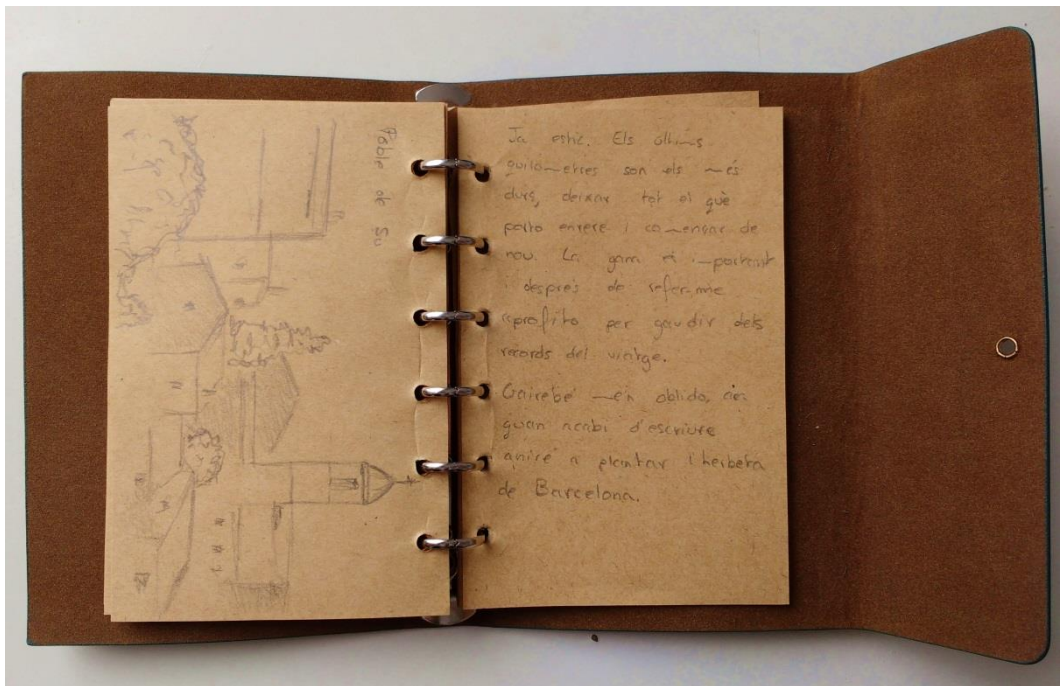 Poble de Su
Ja estic. Els últims
quilometres son els més
durs, deixar tot el què
porto enrere i començar de
nou. La gana és important
i després de refer-me
aprofito per gaudir dels
records del viatge.
Gairebé me'n oblido, ara
quan acabi d'escriure
aniré a plantar l'herbeta
de Barcelona.